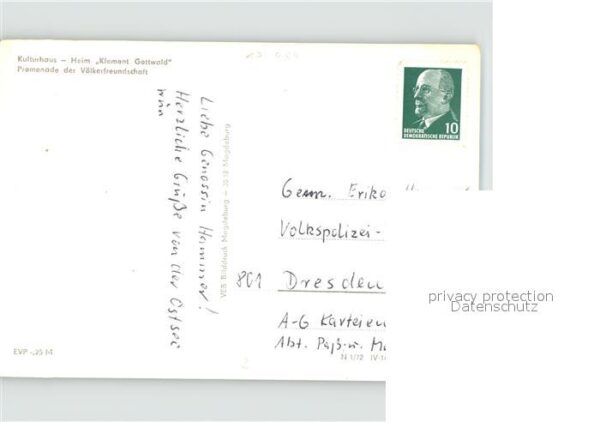 Kulturhaus – Heim „Klement Gottwald"
Promenade der Völkerfreundschaft
10
DEUTSCHE
DEMOKRATISCHE REPUBLIK
Liebe Genossin Hammer!
Herzliche Grüße von der Ostsee
VEB Bilddruck Magdeburg – 3018 Magdeburg
Genn. Erika
Volkspolizei-
801 Dresden
A-G Karteien
Abt. Paß-u. M
EVP -,20 M
N 1/72 IV-14
privacy protection
Datenschutz